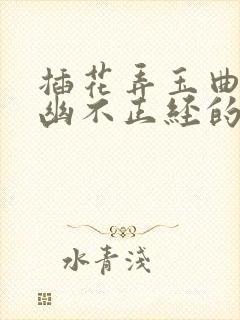 插花弄玉曲
幽不正经的
水青浅